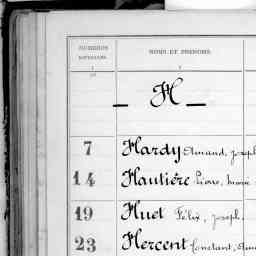 NUMÉROS NOMS ET PRÉNOMS.
1 2
H
7 Hardy Armand, Joseph
14 Hautière Pierre, Marie
19 Huet Félix, Joseph.
23 Hercent Constant,